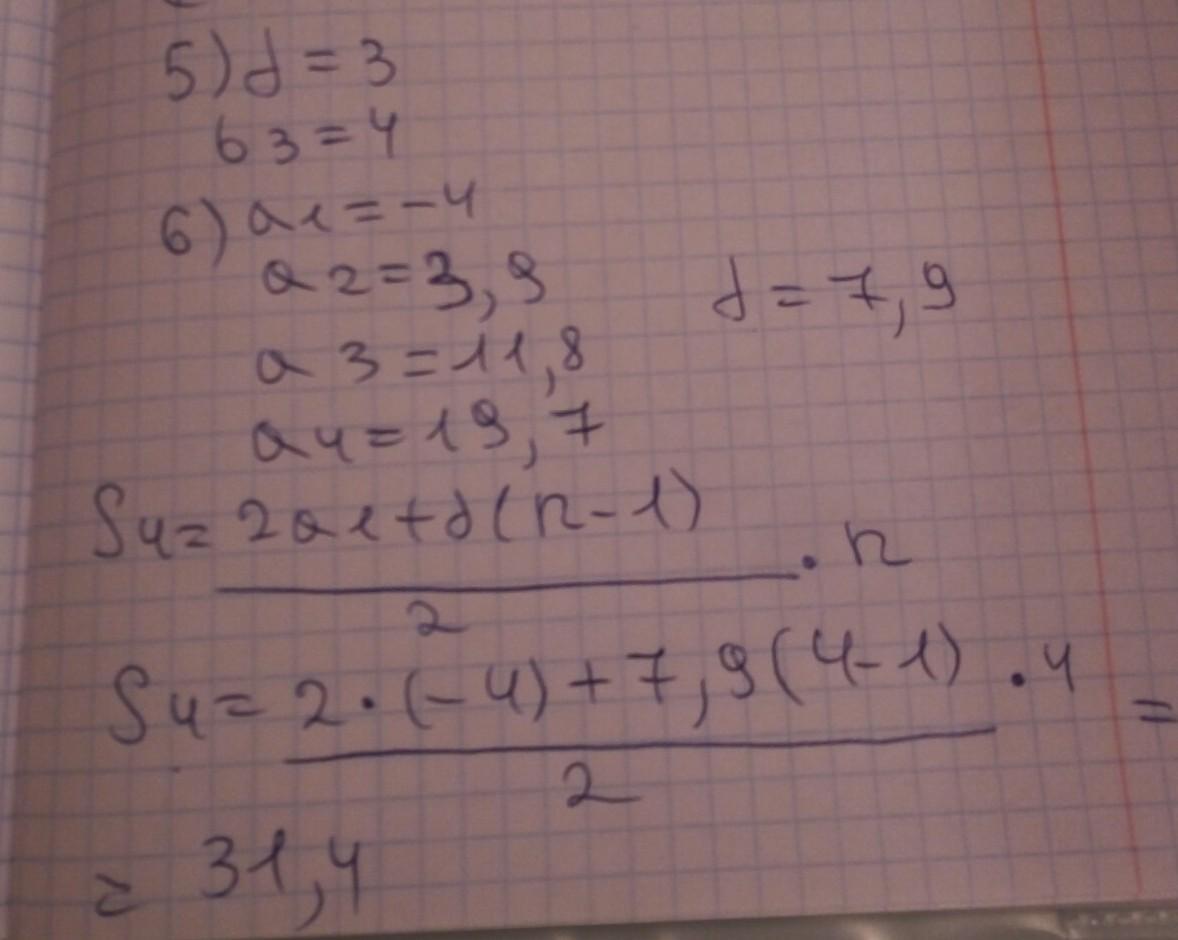 5) d = 3
b3 = 4
6) a1 = -4
a2 = 3,9
d = 7,9
a3 = 11,8
a4 = 19,7
S4 = 2a1+d(n-1) . n
2
S4 = 2·(-4)+7,9(4-1) . 4 =
2
= 31,4